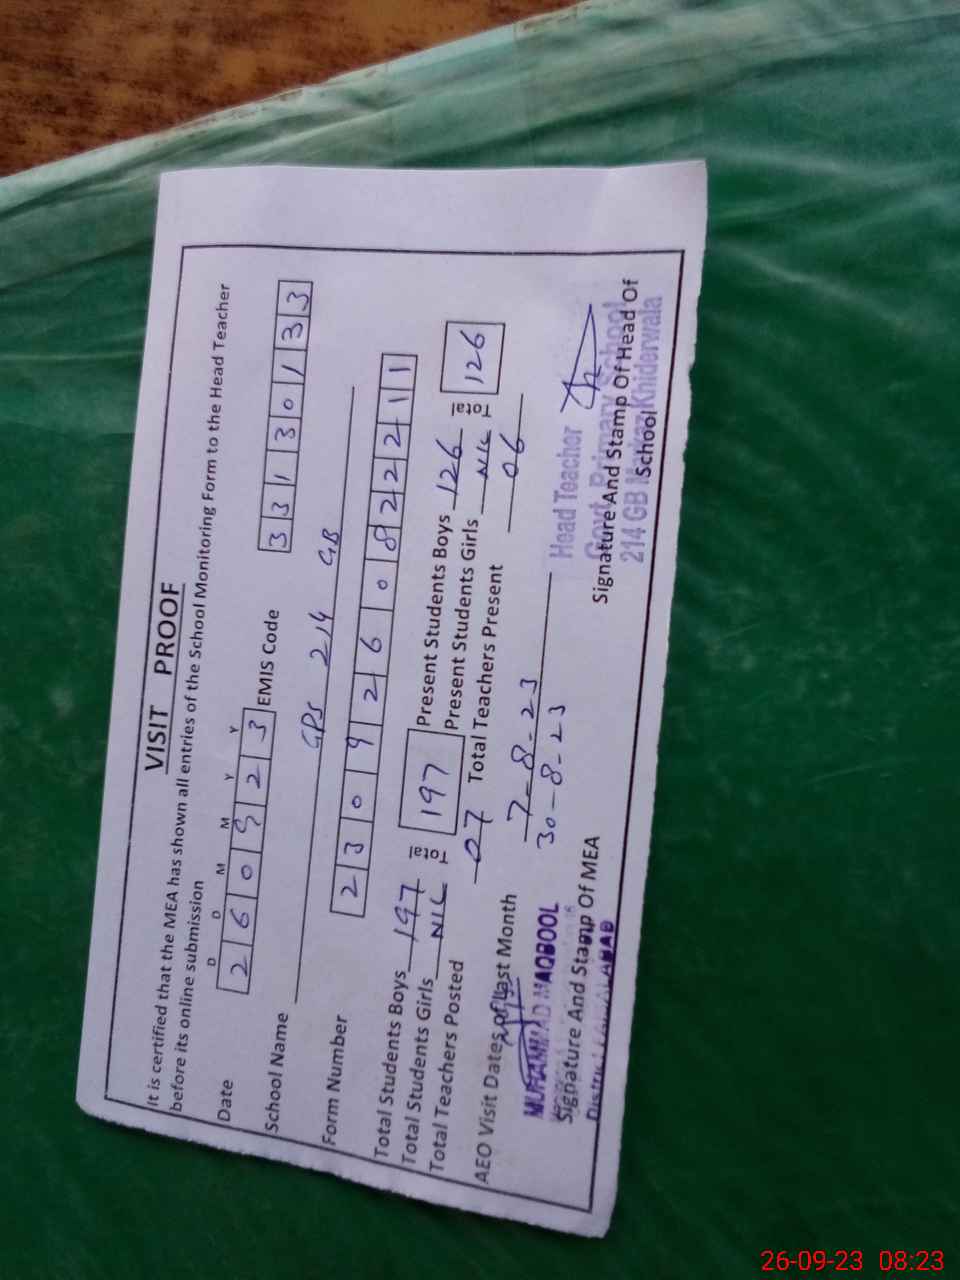 VISIT PROOF
It is certified that the MEA has shown all entries of the School Monitoring Form to the Head Teacher
before its online submission
D D M M Y Y
Date 2 6 0 9 2 3 EMIS Code 3 3 1 3 0 1 3 3
School Name GPS 214 GB
Form Number 2 3 0 9 2 6 0 8 2 2 2 1 1
Total Students Boys 197 Total 197 Present Students Boys 126 Total 126
Total Students Girls NIL Present Students Girls NIL
Total Teachers Posted 07 Total Teachers Present 06
AEO Visit Dates of Last Month 7-8-23
30-8-23
MUHAMMAD MAQBOOL
Signature And Stamp Of MEA
District
Head Teacher
Govt. Primary School
214 GB Markaz Khiderwala
Signature And Stamp Of Head Of
School
26-09-23 08:23